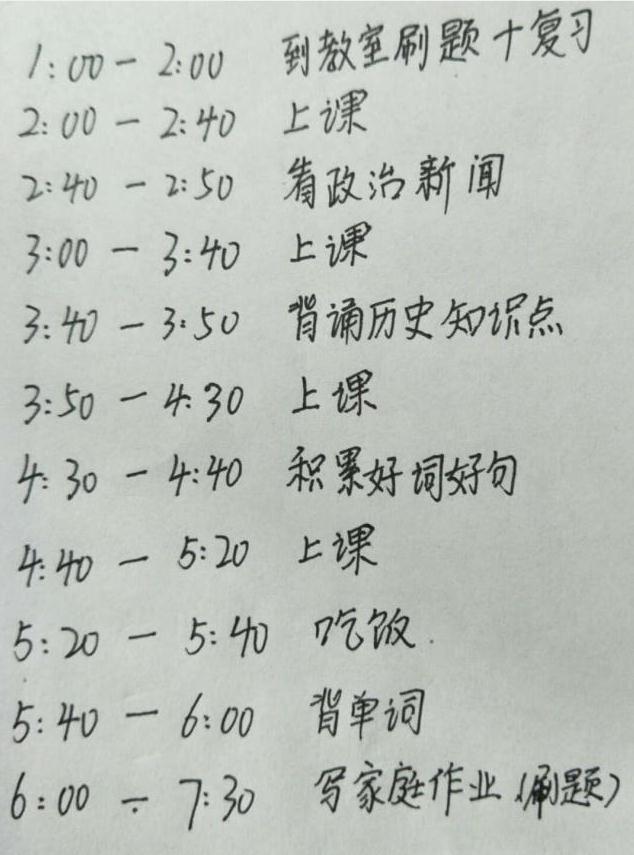 1:00 - 2:00 到教室刷题+复习
2:00 - 2:40 上课
2:40 - 2:50 看政治新闻
3:00 - 3:40 上课
3:40 - 3:50 背诵历史知识点
3:50 - 4:30 上课
4:30 - 4:40 积累好词好句
4:40 - 5:20 上课
5:20 - 5:40 吃饭.
5:40 - 6:00 背单词
6:00 - 7:30 写家庭作业(刷题)